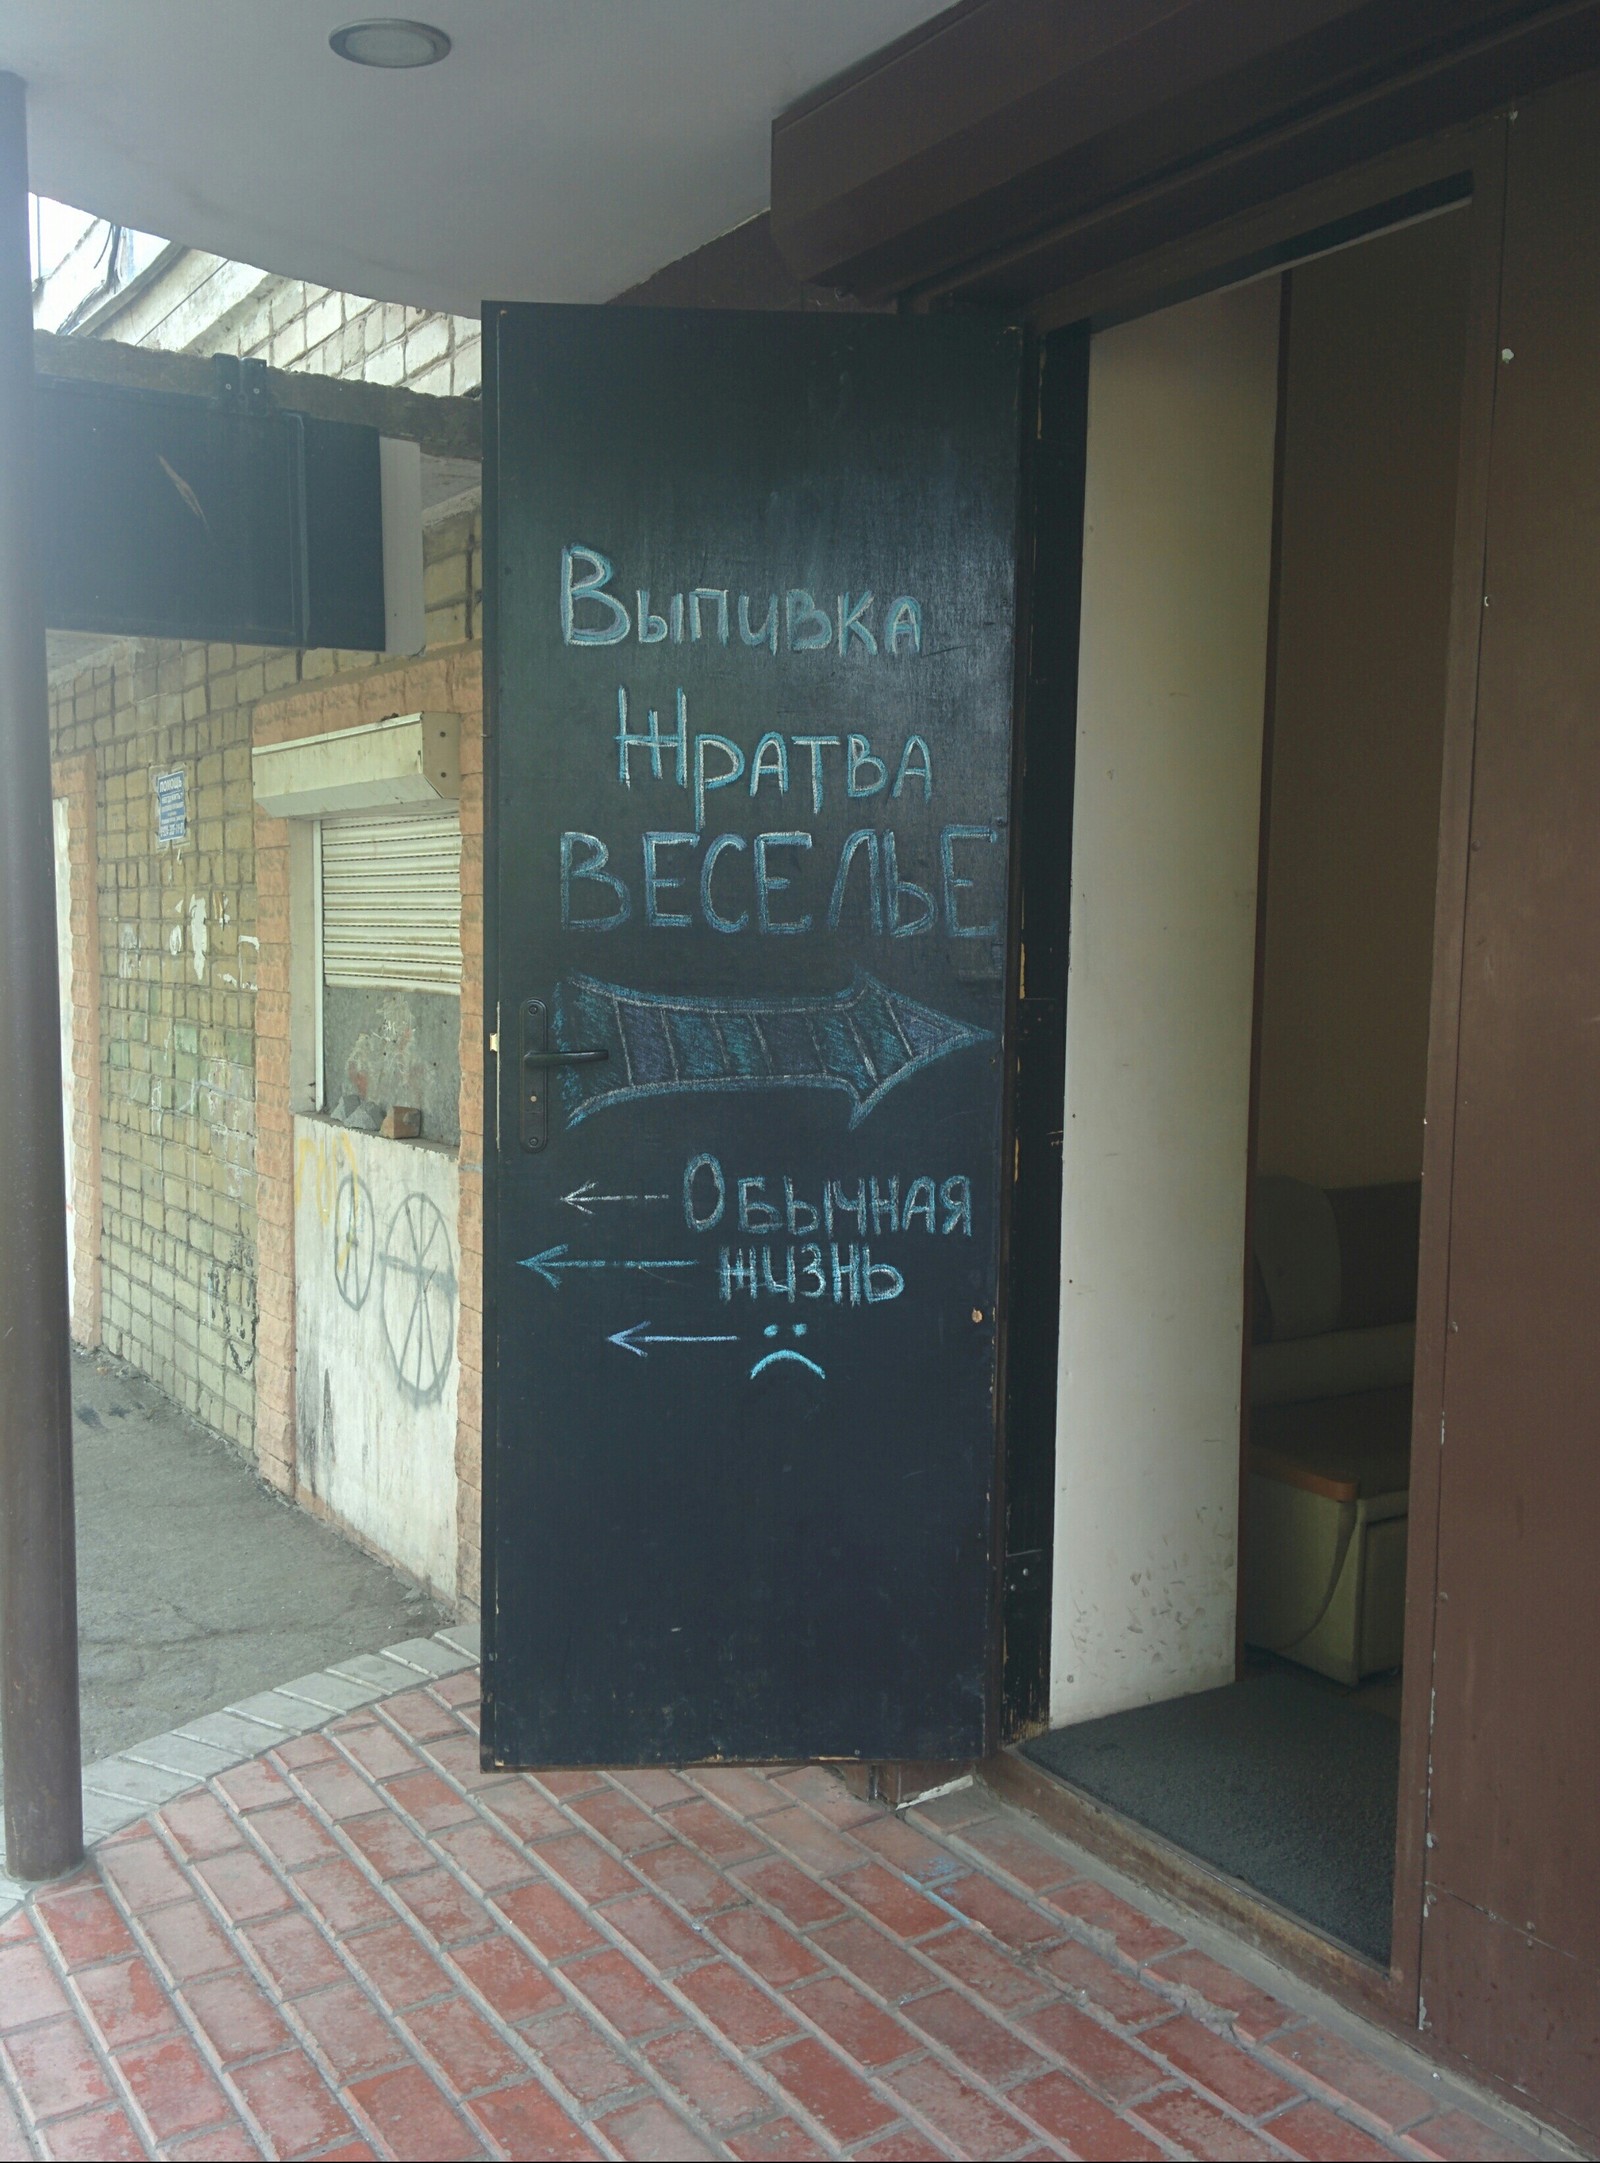 Выпивка
Жратва
ВЕСЕЛЬЕ
Обычная
жизнь
ПОМОЩЬ